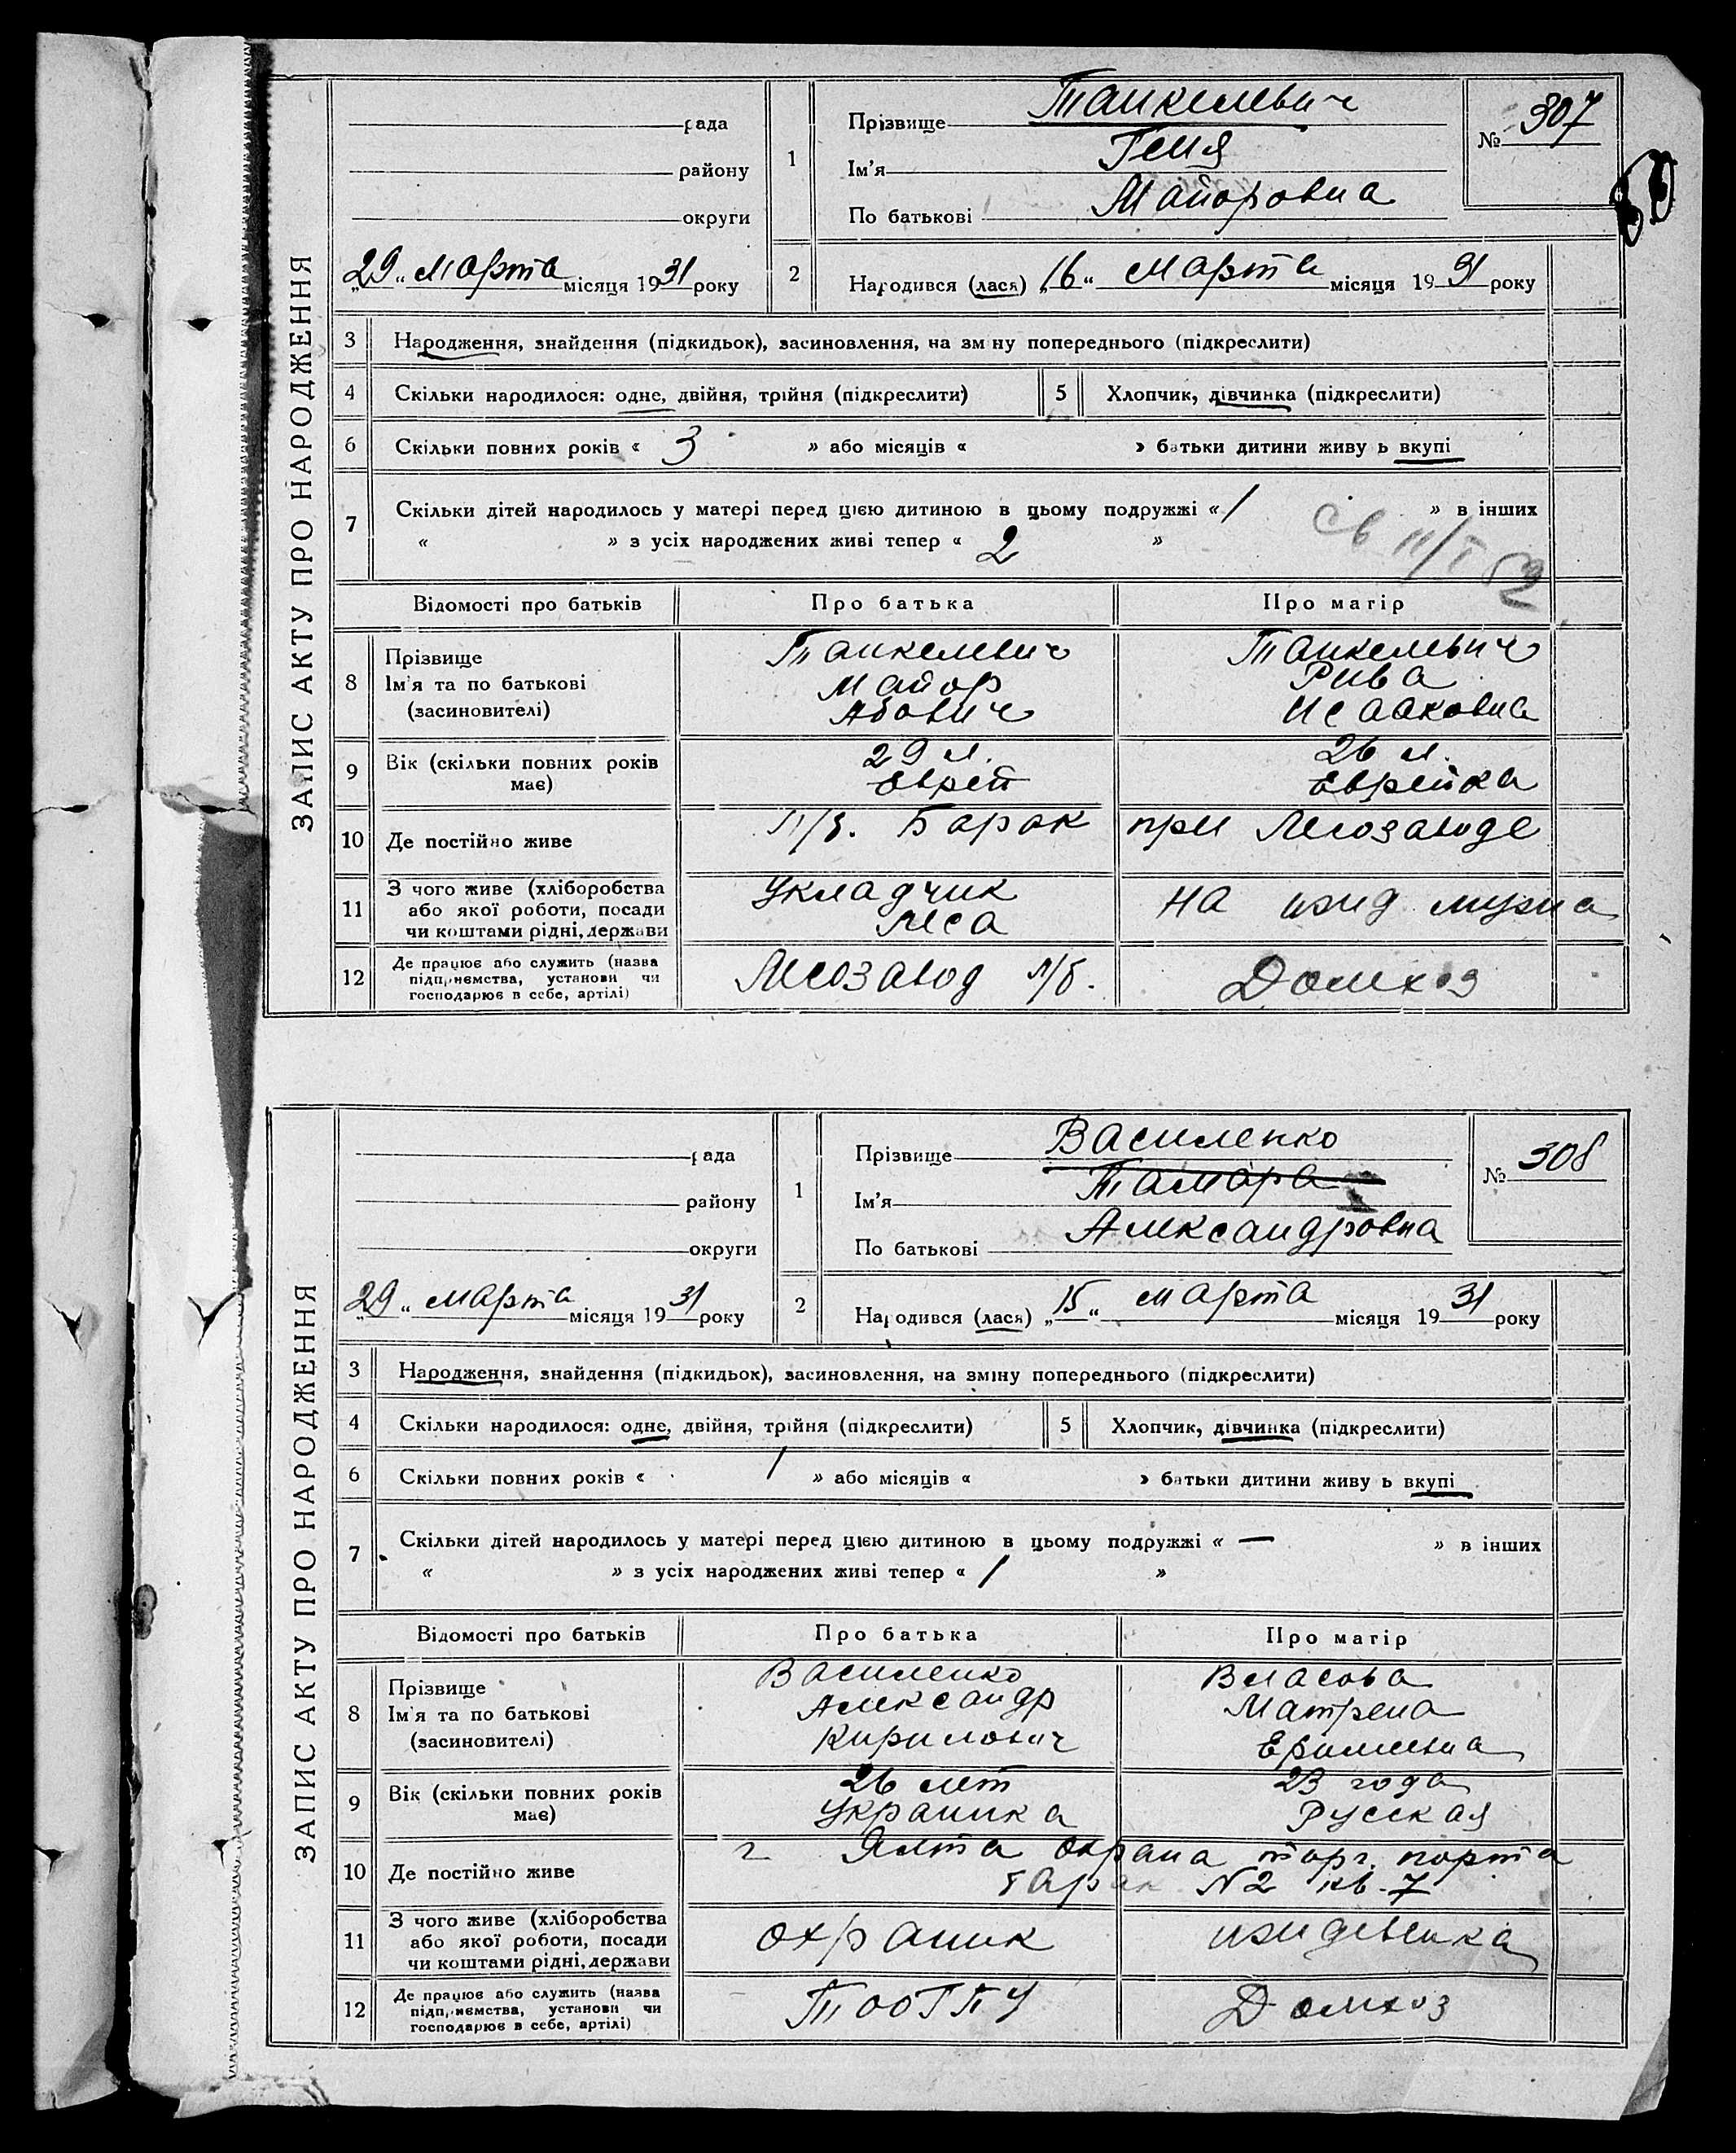 ЗАПИС АКТУ ПРО НАРОДЖЕННЯ
рада
району
округи
„29“ марта місяця 1931 року
1
Прізвище Танкелевич
Ім'я Геня
По батькові Майоровна
№ 307
2
Народився (лася) „16“ Марта місяця 1931 року
3 Народження, знайдення (підкидьок), засиновлення, на зміну попереднього (підкреслити)
4 Скільки народилося: одне, двійня, трійня (підкреслити)
5 Хлопчик, дівчинка (підкреслити)
6 Скільки повних років « 3 » або місяців « » батьки дитини живуть вкупі
7 Скільки дітей народилось у матері перед цією дитиною в цьому подружжі « 1 » в інших
« » з усіх народжених живі тепер « 2 »
Св 11/I 52
Відомості про батьків Про батька Про матір
8 Прізвище Танкелевич Танкелевич
Ім'я та по батькові Майор Рива
(засиновителі) Абович Исааковна
9 Вік (скільки повних років 29 л. 26 л.
має) Еврей Еврейка
10 Де постійно живе Л/з. Барак при Лесозаводе
11 З чого живе (хліборобства Укладчик на ижд мужа
або якої роботи, посади леса
чи коштами рідні, держави
12 Де працює або служить (назва Лесозавод Домхоз
підприємства, установи чи
господарює в себе, артілі)
ЗАПИС АКТУ ПРО НАРОДЖЕННЯ
рада
району
округи
„29“ марта місяця 1931 року
1
Прізвище Василенко
Ім'я Тамара
По батькові Александровна
№ 308
2
Народився (лася) „15“ марта місяця 1931 року
3 Народження, знайдення (підкидьок), засиновлення, на зміну попереднього (підкреслити)
4 Скільки народилося: одне, двійня, трійня (підкреслити)
5 Хлопчик, дівчинка (підкреслити)
6 Скільки повних років « 1 » або місяців « » батьки дитини живуть вкупі
7 Скільки дітей народилось у матері перед цією дитиною в цьому подружжі « — » в інших
« » з усіх народжених живі тепер « 1 »
Відомості про батьків Про батька Про матір
8 Прізвище Василенко Власова
Ім'я та по батькові Александр Матрена
(засиновителі) Кирилович
9 Вік (скільки повних років 26 лет 23 года
має) Русская
10 Де постійно живе г Ялта охрана торг. порта
барак N2 кв. 7
11 З чого живе (хліборобства охраник иждевенка
або якої роботи, посади
чи коштами рідні, держави
12 Де працює або служить (назва ТООГПУ Домхоз
підприємства, установи чи
господарює в себе, артілі)